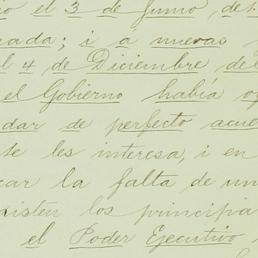 el 3 de Junio, de
i a nuevas
4 de Diciembre de
el Gobierno habia
dar de perfecto
te les interesa, i en
car la falta de un
los principia
el Poder Ejecutivo